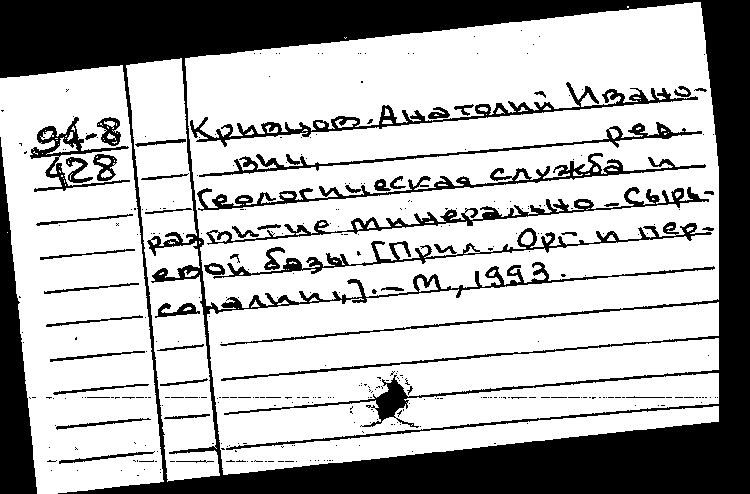 94-8
428
Кривцов Анатолий Ивано-
вич, ред.
Геологическая служба и
развитие минерально-сырь-
евой базы. [Прил. „Орг. и пер-
соналии„]. – М., 1993.